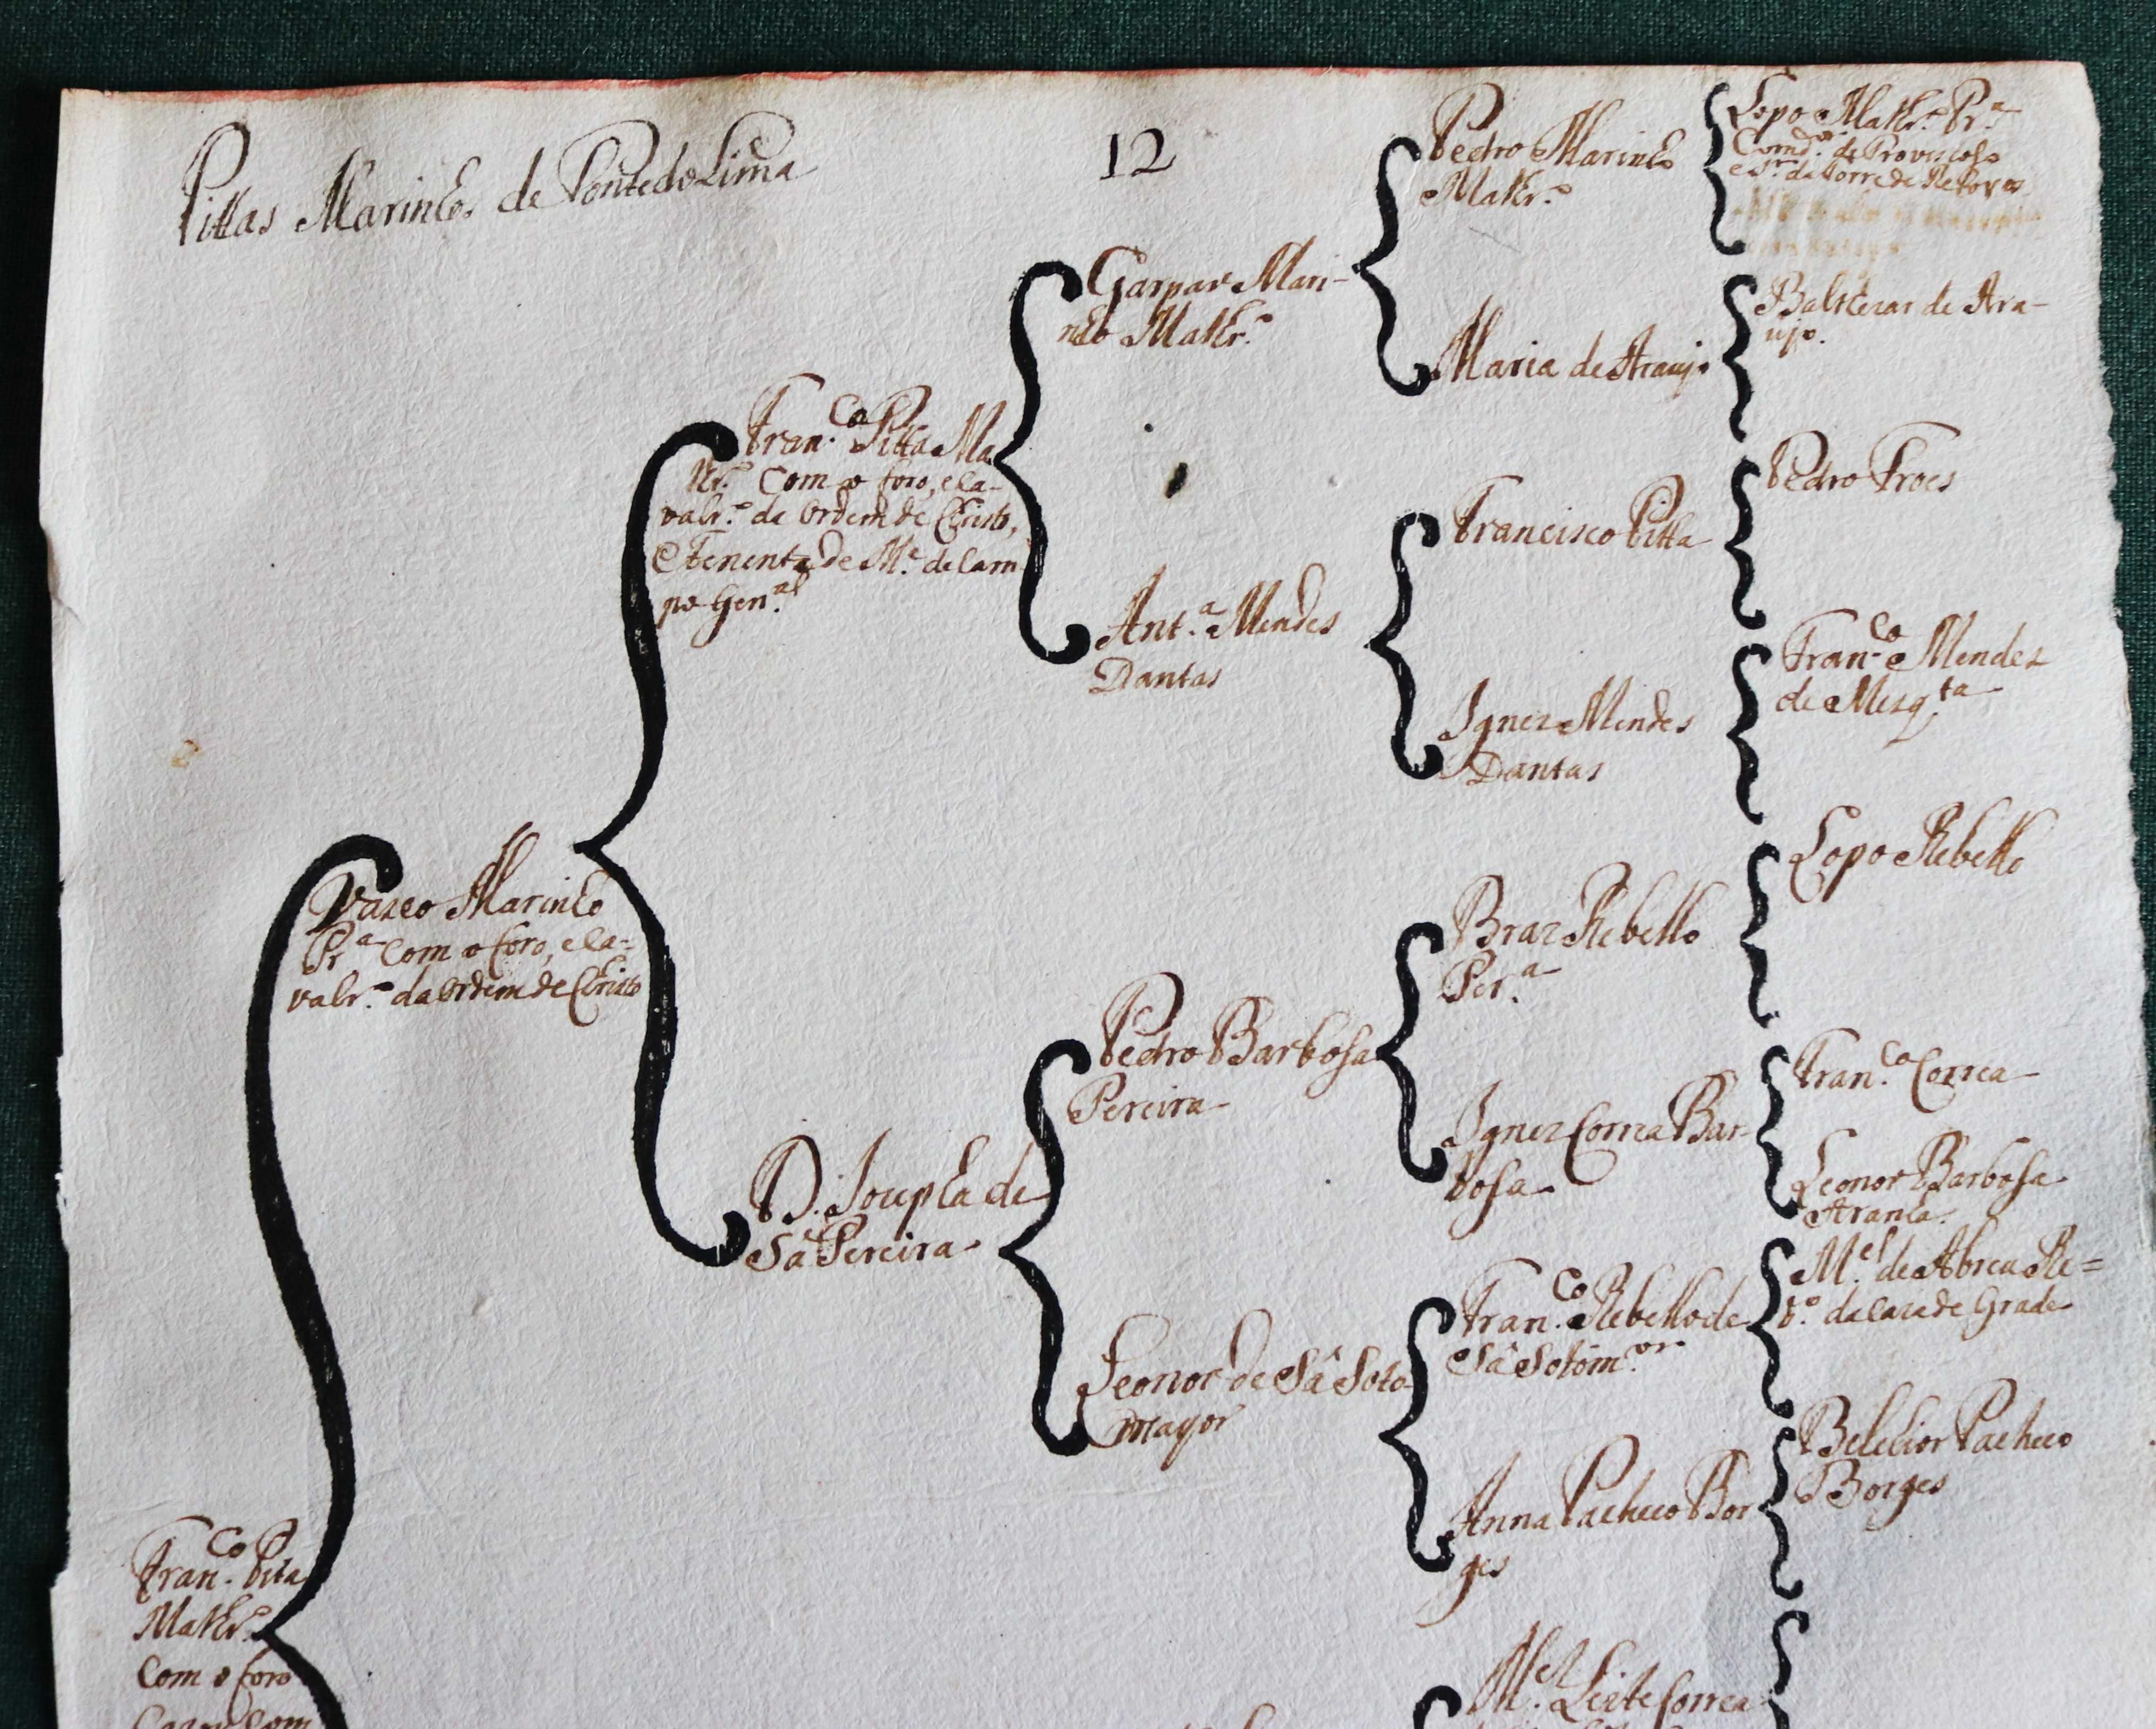 Pittas Marinhos de Pontedo Lima
12
Pedro Marinho
Malhr.º
Lopo Malhr.º Pr.ª
Comd.or de Proviscoso
e Sr. da Torre de Refoyos
Gaspar Mari-
nho Malhr.º
Balthezar de Ara-
ujo.
Maria de Araujo
Fran.co Pitta Ma
lhr.º Com o foro, e ca-
valr.º da ordem de Christo,
e Tenente de M.e de Cam
po Gen.al
Pedro Froes
Francisco Pitta
Ant.a Mendes
Dantas
Fran.co Mendez
de Mezq.ta
Ignez Mendes
Dantas
Vasco Marinho
Pr.a Com o foro, e ca=
valr.º da ordem de Christo
Lopo Rebello
Braz Rebello
Per.a
Pedro Barbosa
Pereira
Fran.co Correa
Ignez Correa Bar-
bosa
Leonor Barbosa
Aranha.
D. Joupha de
Sá Pereira
M.el de Abreu Re=
b.º da Caza de Grade
Fran.co Rebello de
Sá Sotom.or
Leonor de Sá Soto
mayor
Belchior Pacheco
Borges
Anna Pacheco Bor
ges
Fran.co Pita
Malhr.º
Com o foro
M.el Leite Correa